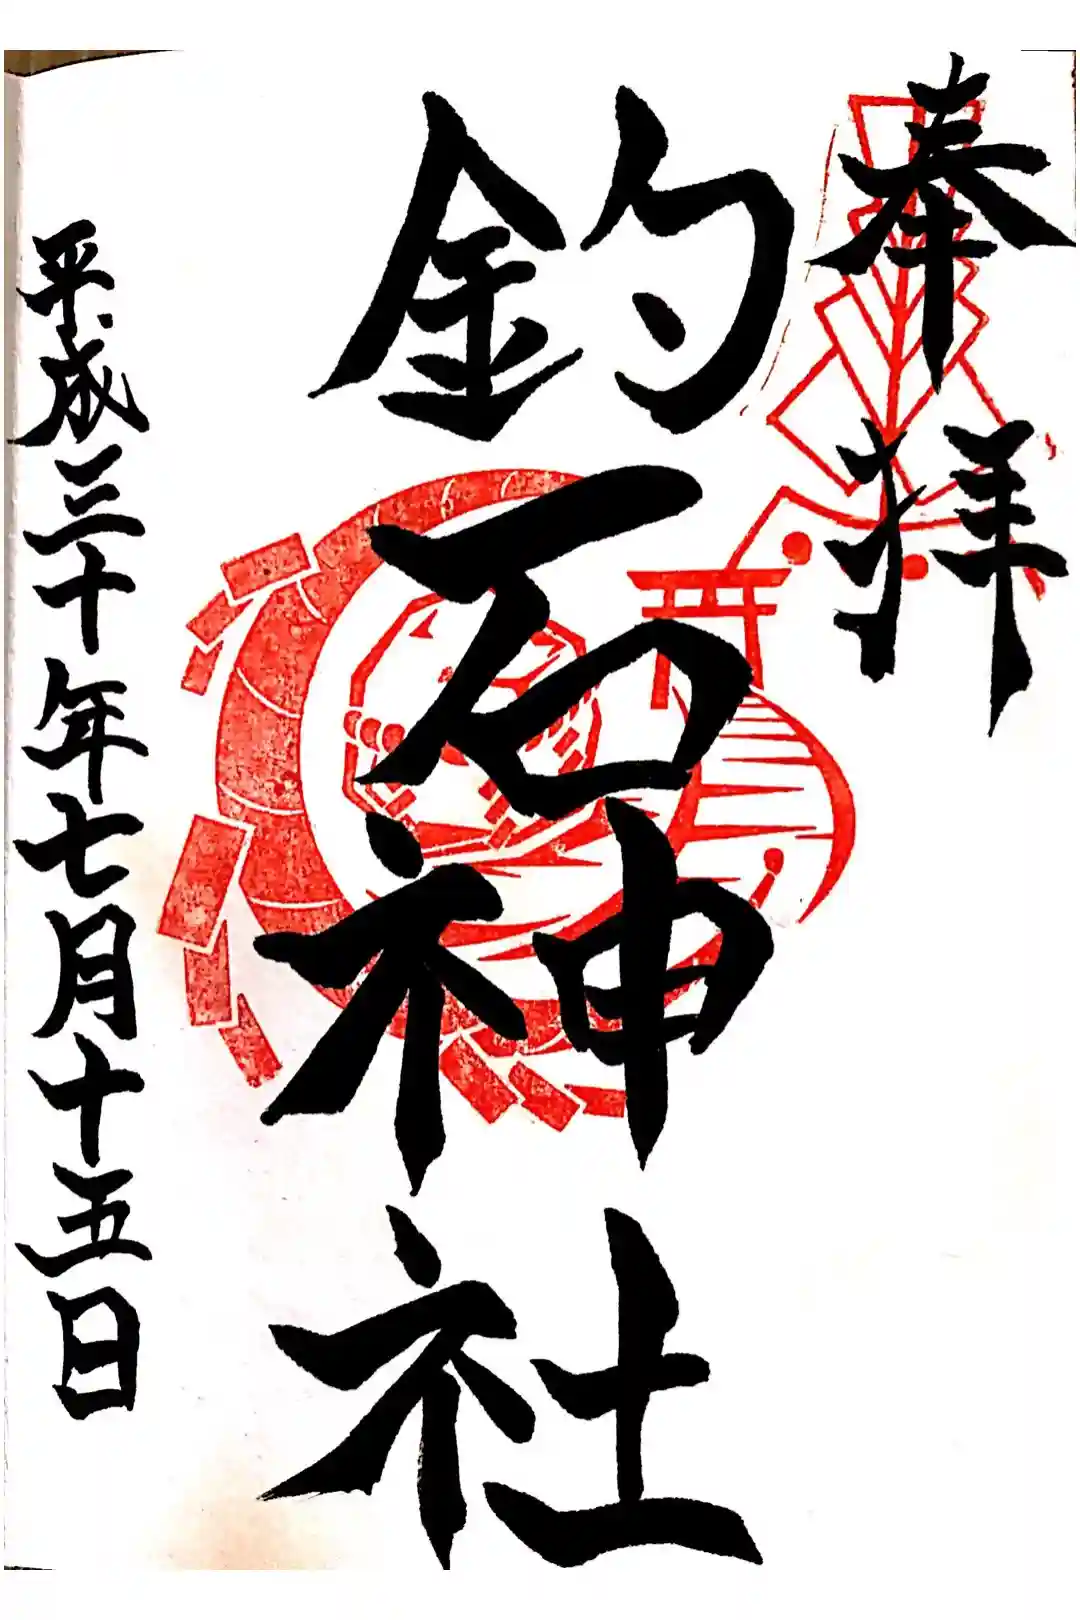 奉拝
釣石神社
平成三十年七月十五日